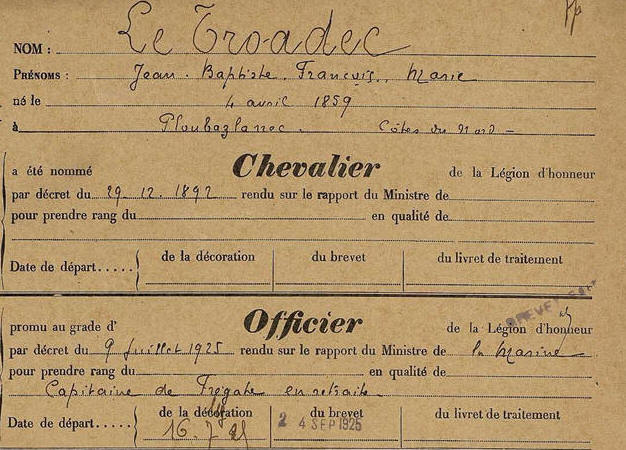 NOM : Le Troadec
PRÉNOMS : Jean. Baptiste. François. Marie
né le 4 avril 1859
à Ploubazlanec. Côtes du Nord -
a été nommé Chevalier de la Légion d'honneur
par décret du 29. 12. 1892 rendu sur le rapport du Ministre de
pour prendre rang du en qualité de
de la décoration du brevet du livret de traitement
Date de départ.....
promu au grade d' Officier de la Légion d'honneur
par décret du 9 Juillet 1925 rendu sur le rapport du Ministre de la Marine
pour prendre rang du en qualité de
Capitaine de Frégate en retraite
de la décoration du brevet du livret de traitement
Date de départ..... 16. 7 25 24 SEP 1925